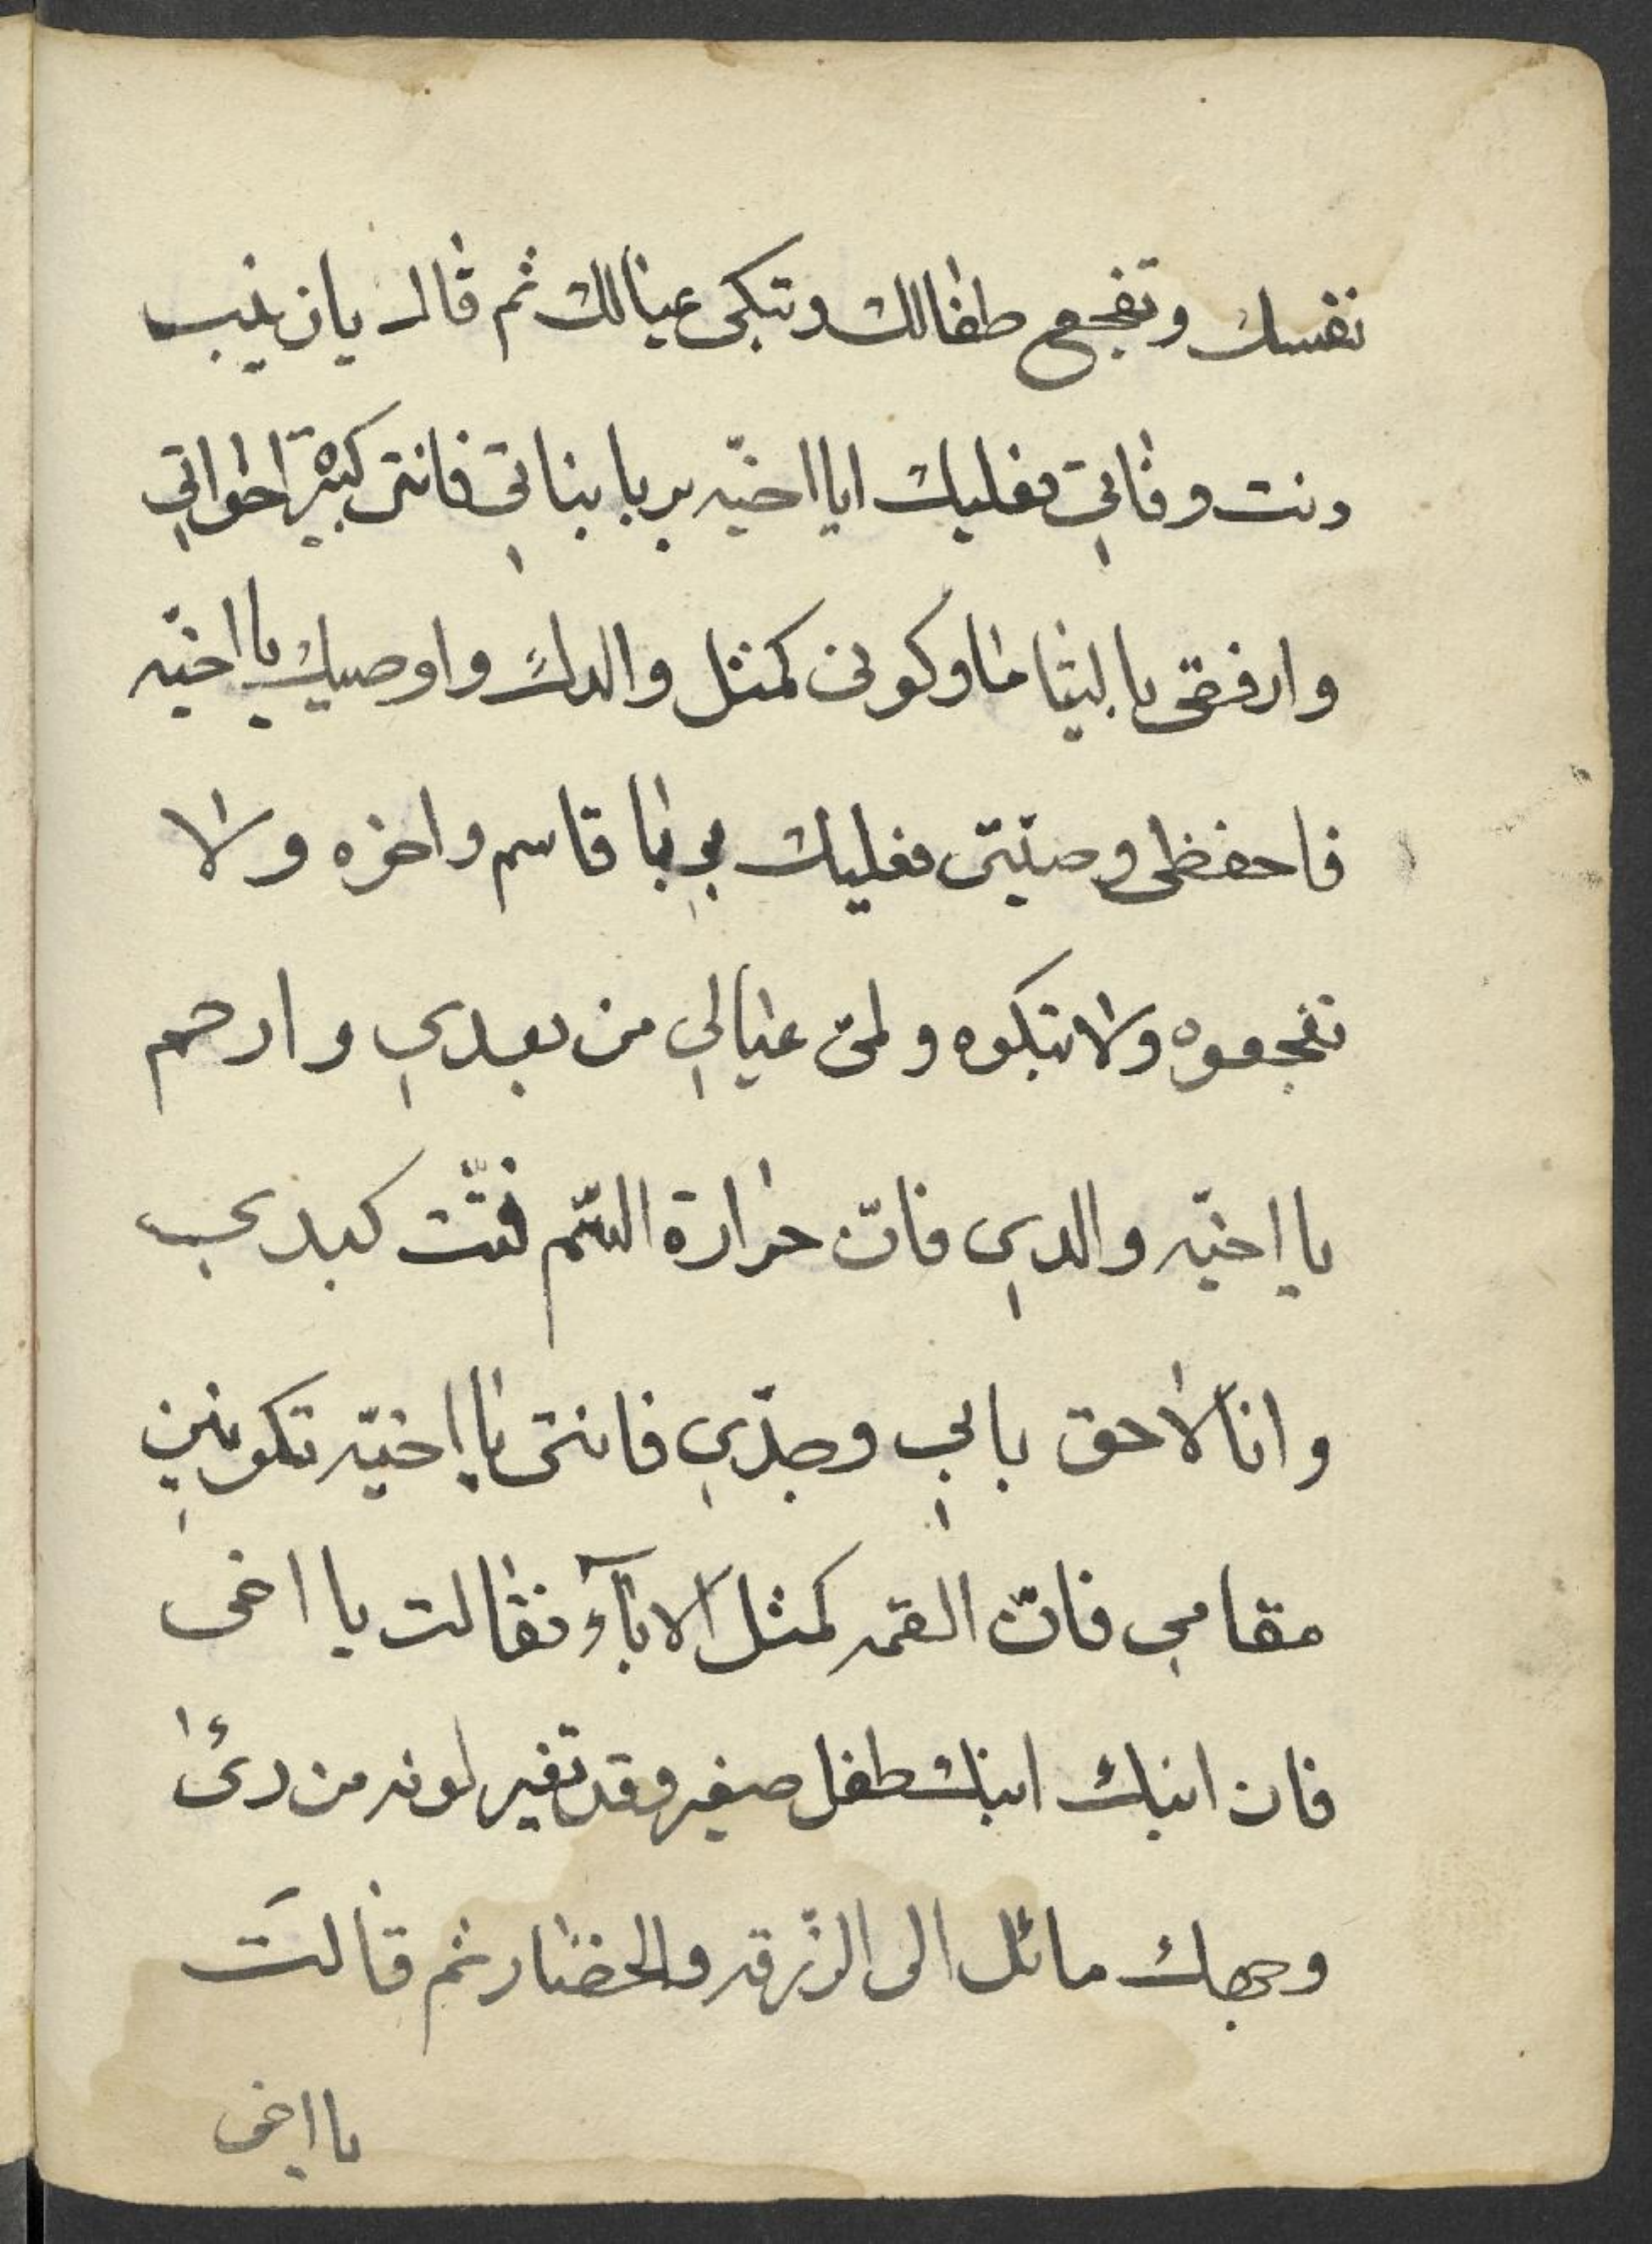 نفسك وتفجع طفالك وتبكى عيالك ثم قال يا زينب
دنت وفاتي فعليك ايا اخيّه بربا بناتي فانتى كبيرة اخواتي
وارفقى يا ليتاما وكونى كمثل والدك واوصيك يا اخيّه
فاحفظى وصيّتى فعليك بي با قاسم واخوه ولا
تفجعوه ولا تبكوه ولمى عيالي من بعدي وارحم
يا اخيّه والدي فانّ حرارة السّم فتّت كبدي
وانا لاحق بابي وجدّي فانتى يا اخيّه تكونين
مقامي فانّ القمه كمثل الابآء فقالت يا اخى
فان ابنك ابنك طفل صغير وقد تغير لونه من رئ
وجهك مائل الى الزّرقه والخضار ثم قالت
يا اخى